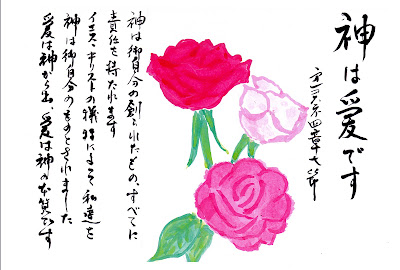 神は愛です
第一ヨハネ四章十六節
神は御自分の創られたもの、すべてに
責任を持たれます
イエス・キリストの犠牲によって私達を
神は御自分のものとされました
愛は神から出、愛は神の本質です